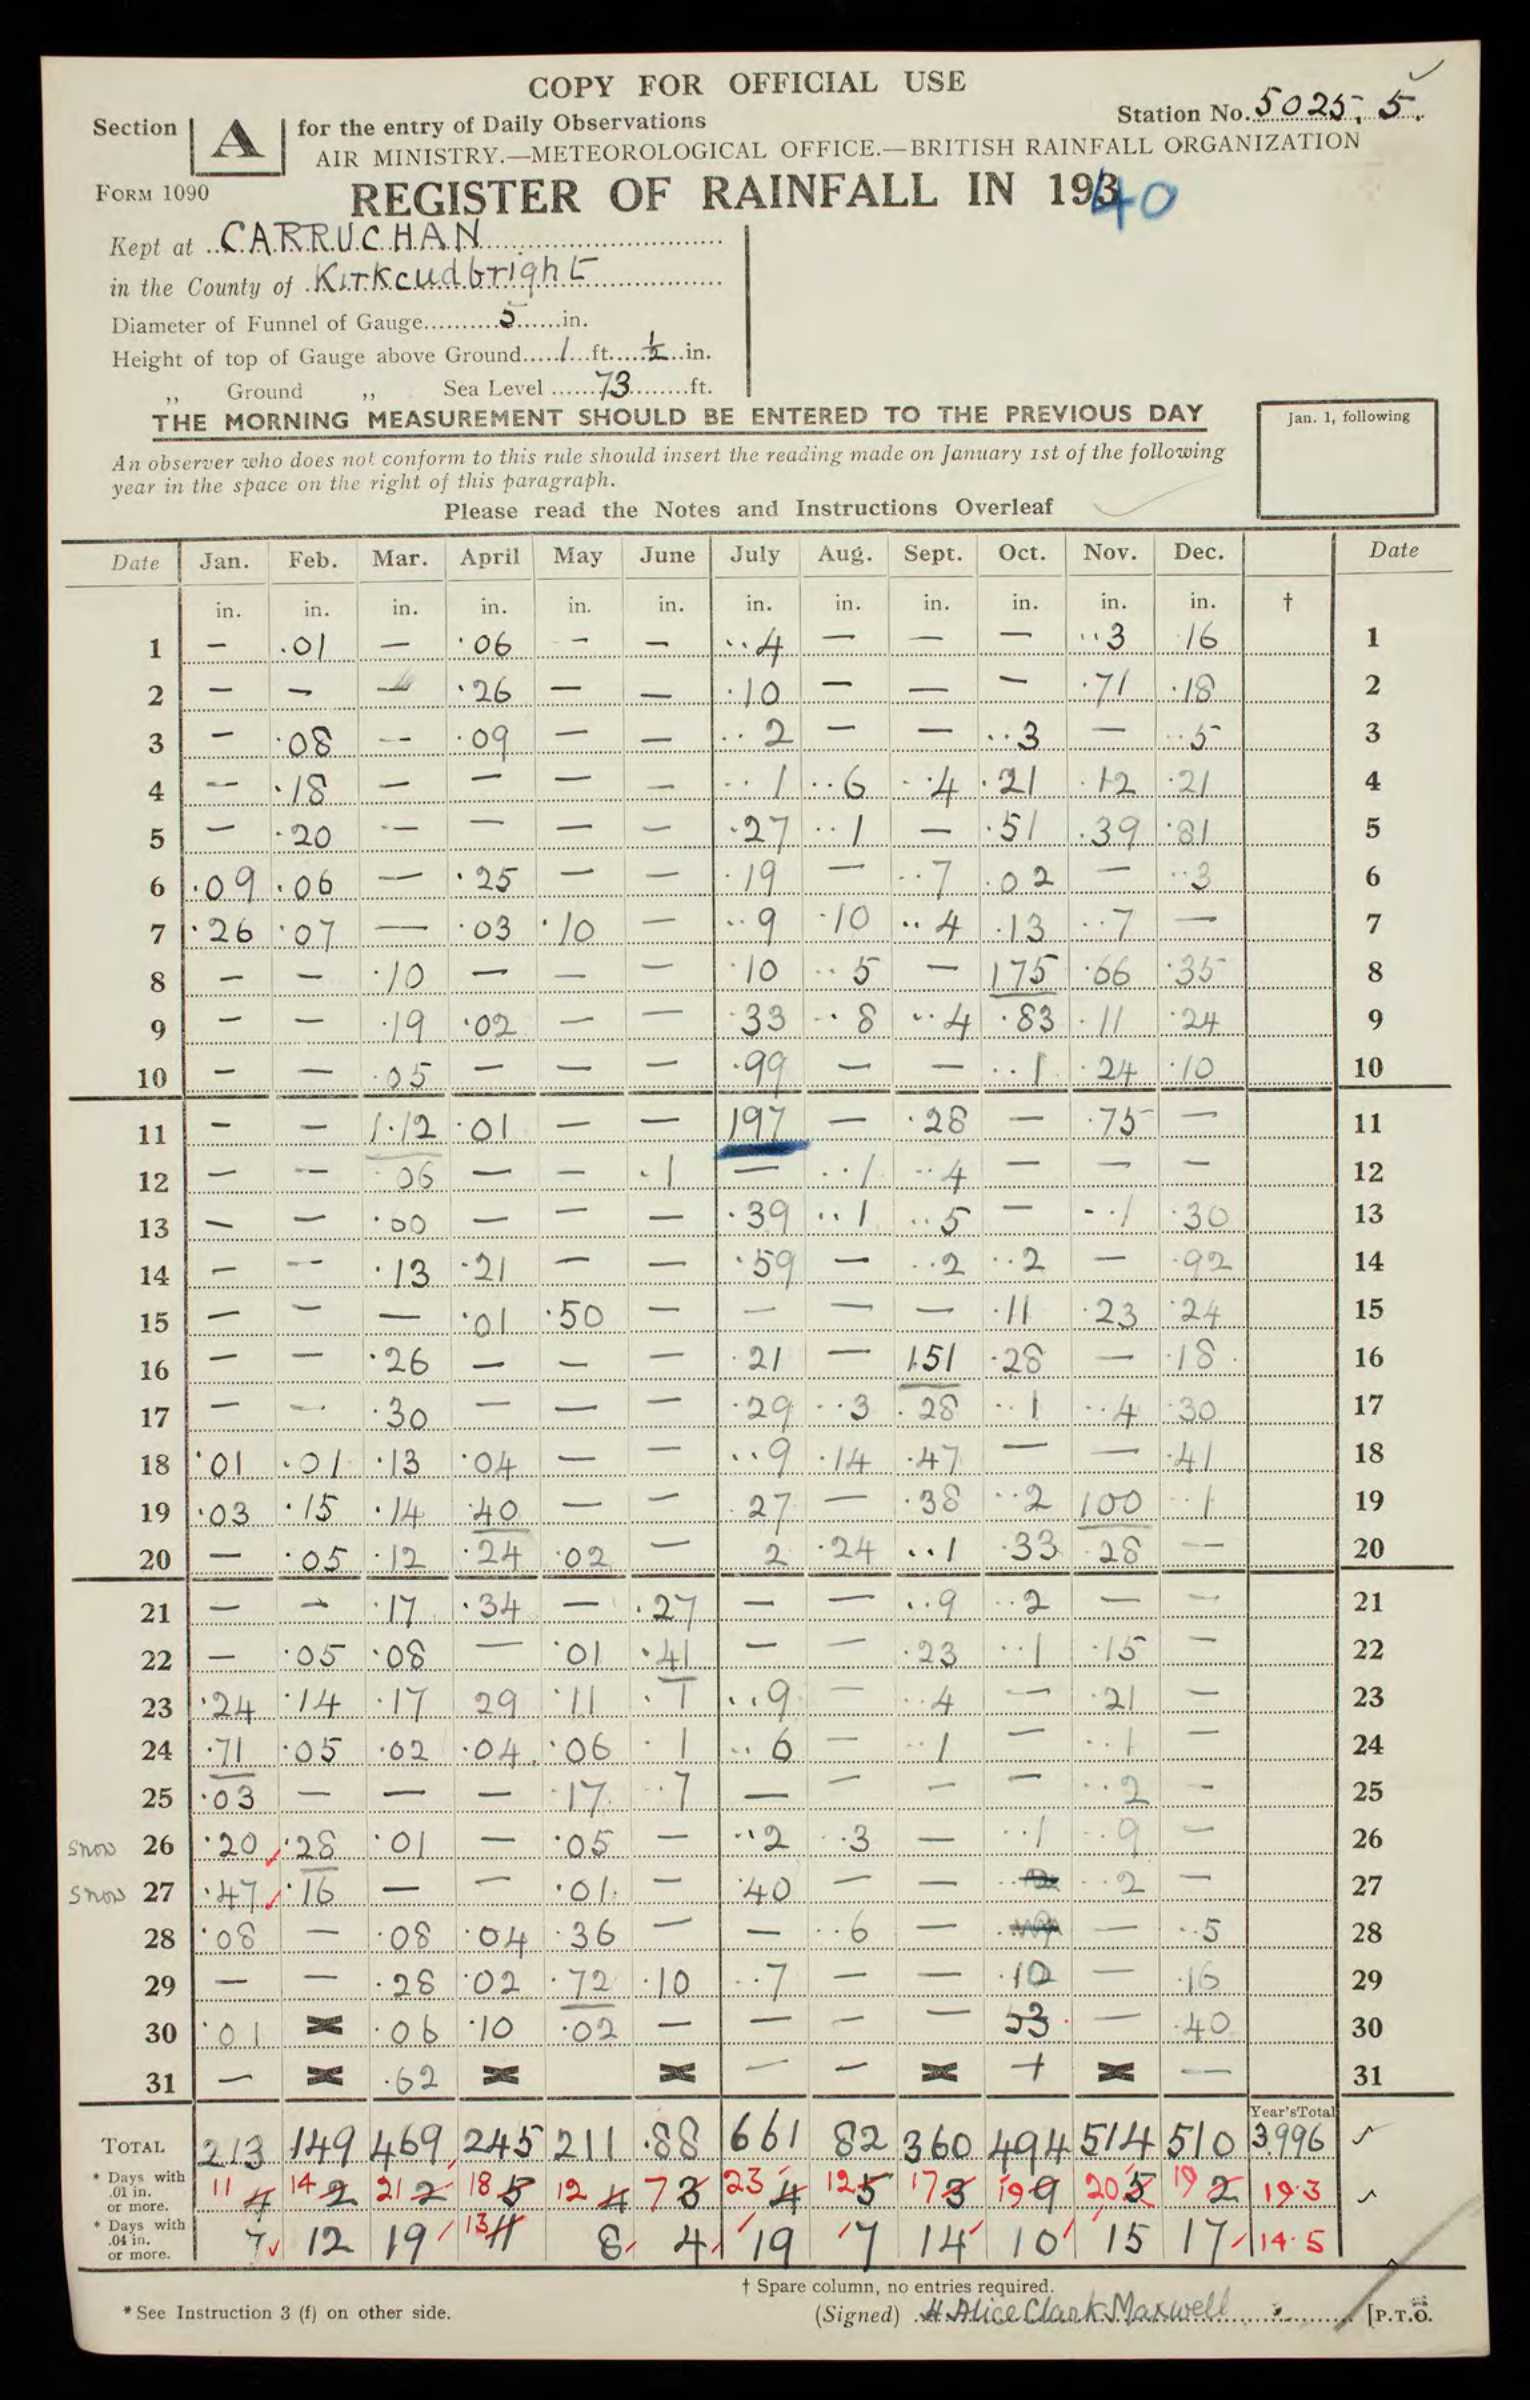 COPY FOR OFFICIAL USE
Station No. 5025.5.
Section A for the entry of Daily Observations
AIR MINISTRY.—METEOROLOGICAL OFFICE.—BRITISH RAINFALL ORGANIZATION
FORM 1090 REGISTER OF RAINFALL IN 1940
Kept at CARRUCHAN
in the County of Kirkcudbright
Diameter of Funnel of Gauge 5 in.
Height of top of Gauge above Ground 1 ft. ½ in.
,, Ground ,, Sea Level 73 ft.
THE MORNING MEASUREMENT SHOULD BE ENTERED TO THE PREVIOUS DAY
Jan. 1, following
An observer who does not conform to this rule should insert the reading made on January 1st of the following
year in the space on the right of this paragraph.
Please read the Notes and Instructions Overleaf
Date Jan. Feb. Mar. April May June July Aug. Sept. Oct. Nov. Dec. Date
in. in. in. in. in. in. in. in. in. in. in. in. †
1 — .01 — .06 — — ..4 — — — ..3 16 1
2 — — — .26 — — .10 — — — .71 .18 2
3 — .08 — .09 — — ..2 — — ..3 — ..5 3
4 — .18 — — — — ..1 ..6 ..4 .21 .12 .21 4
5 — .20 — — — — .27 ..1 — .51 .39 .81 5
6 .09 .06 — .25 — — .19 — ..7 .02 — ..3 6
7 .26 .07 — .03 .10 — ..9 .10 ..4 .13 ..7 — 7
8 — — .10 — — — .10 ..5 — 175 .66 .35 8
9 — — .19 .02 — — .33 ..8 ..4 .83 .11 .24 9
10 — — .05 — — — .99 — — ..1 .24 .10 10
11 — — 1.12 .01 — — 197 — .28 — .75 — 11
12 — — .06 — — .1 — ..1 ..4 — — — 12
13 — — .00 — — — .39 ..1 ..5 — ..1 .30 13
14 — — .13 .21 — — .59 — ..2 ..2 — .92 14
15 — — — .01 .50 — — — — .11 .23 .24 15
16 — — .26 — — — .21 — 1.51 .28 — .18 16
17 — — .30 — — — .29 ..3 .28 ..1 ..4 .30 17
18 .01 .01 .13 .04 — — ..9 .14 .47 — — .41 18
19 .03 .15 .14 .40 — — .27 — .38 ..2 100 ..1 19
20 — .05 .12 .24 .02 — 2 .24 ..1 .33 .28 — 20
21 — — .17 .34 — .27 — — ..9 ..2 — — 21
22 — .05 .08 — .01 .41 — — .23 ..1 .15 — 22
23 .24 .14 .17 29 .11 .1 ..9 — ..4 — .21 — 23
24 .71 .05 .02 .04 .06 .1 ..6 — ..1 — ..1 — 24
25 .03 — — — .17 ..7 — — — — ..2 — 25
snow 26 .20 .28 .01 — .05 — ..2 ..3 — ..1 ..9 — 26
snow 27 .47 .16 — — .01 — .40 — — ..2 — 27
28 .08 — .08 .04 .36 — — ..6 — — ..5 28
29 — — .28 .02 .72 .10 ..7 — — .10 — .16 29
30 .01 × .06 .10 .02 — — — — 53 — .40 30
31 — × .62 × × — — × + × — 31
Year's Total
TOTAL 213 149 469 245 211 .88 661 82 360 494 514 510 3.996
* Days with .01 in. or more. 11 4 14 2 21 2 18 5 12 4 7 3 23 4 12 5 17 3 19 9 20 5 19 2 19.3
* Days with .04 in. or more. 7 12 19 13 11 8 4 19 7 14 10 15 17 14.5
† Spare column, no entries required.
* See Instruction 3 (f) on other side. (Signed) H. Alice Clark Maxwell [P.T.O.